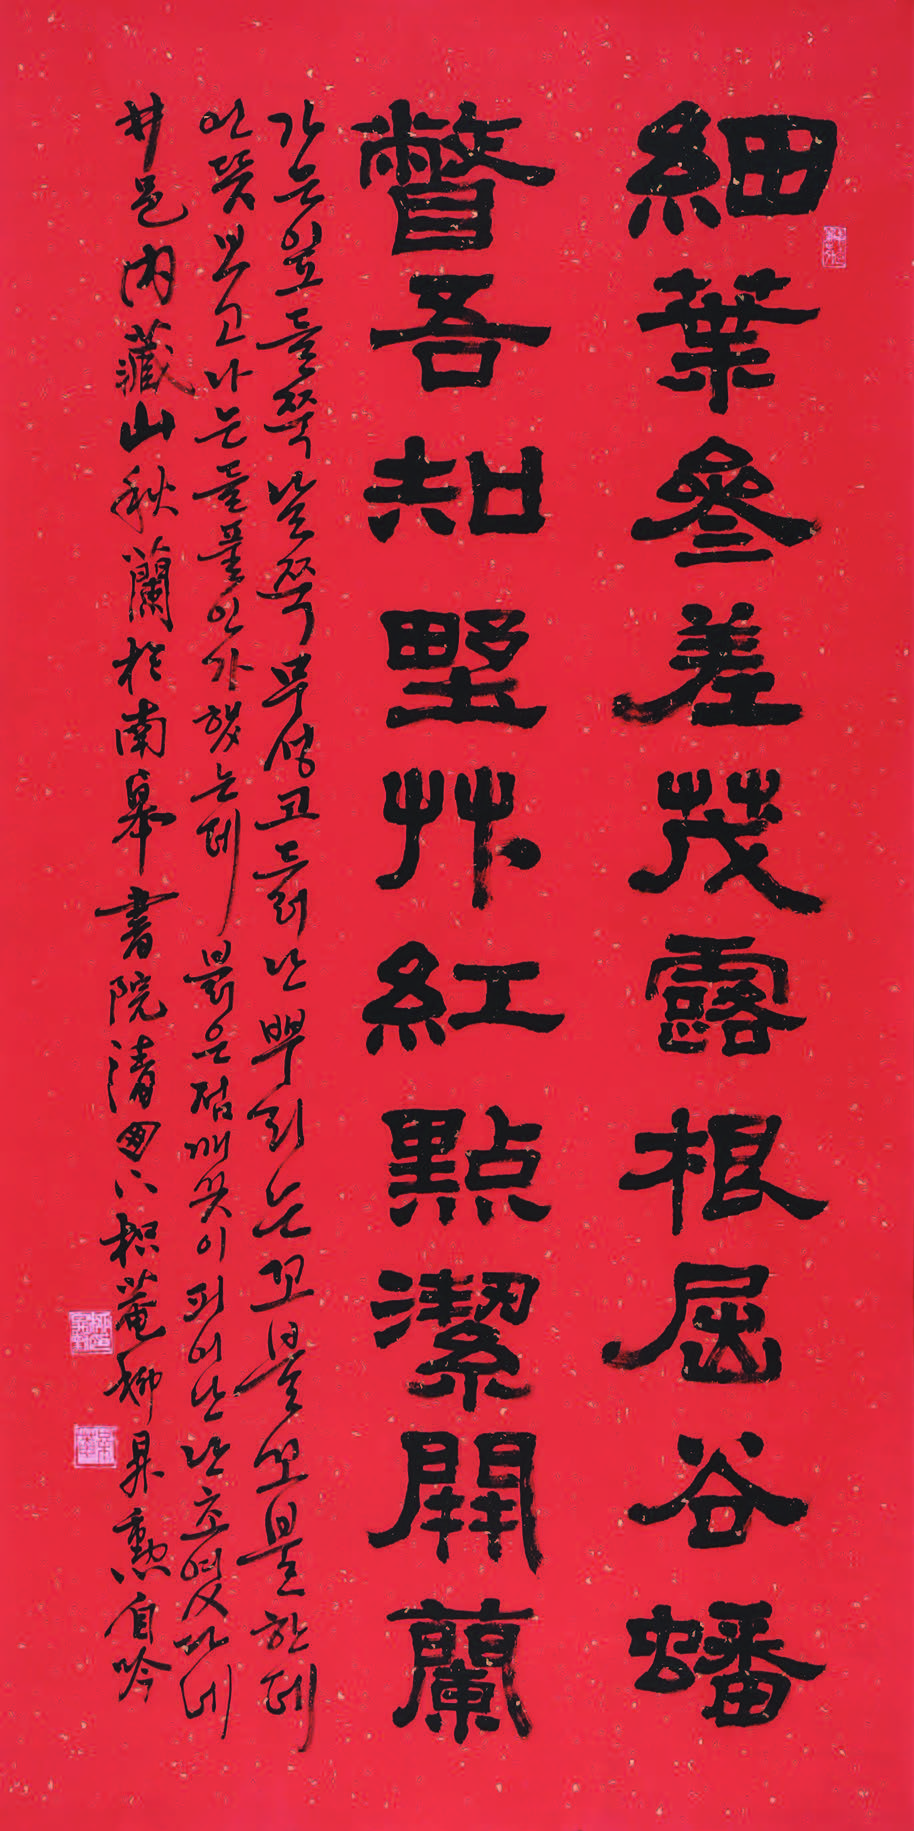 細葉參差茂露根屈谷蟠
瞥吾知墅艸紅點潔開蘭
가는잎 들쭉날쭉 무성코 드러난 뿌리는 꼬불꼬불한데
언뜻보고 나는 들풀인가 했는데 붉은점 깨끗이 피어난 난초였다네
井邑內藏山秋蘭於南皐書院清 菴柳昇勳自吟